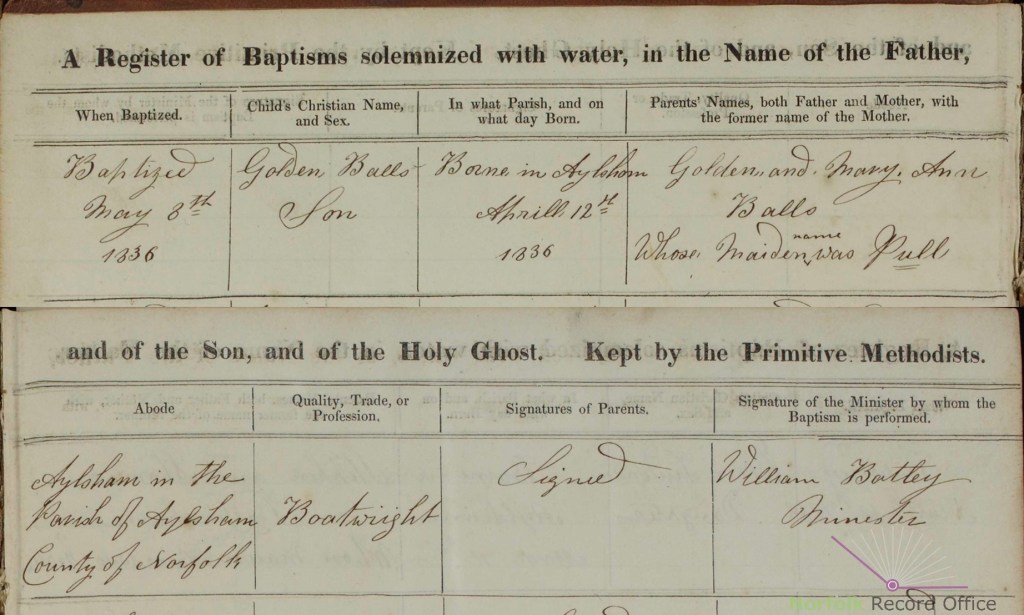 A Register of Baptisms solemnized with water, in the Name of the Father,
When Baptized.
Child's Christian Name,
and Sex.
In what Parish, and on
what day Born.
Parents' Names, both Father and Mother, with
the former name of the Mother.
Baptized
May 8th
1836
Golden Balls
Son
Borne in Aylsham
Aprill 12th
1836
Golden, and, Mary, Ann
Balls
Whose Maiden name was Pull
and of the Son, and of the Holy Ghost. Kept by the Primitive Methodists.
Abode
Quality, Trade, or
Profession.
Signatures of Parents.
Signature of the Minister by whom the
Baptism is performed.
Aylsham in the
Parish of Aylsham
County of Norfolk
Boatwright
Signed
William Batley
Minester
Norfolk Record Office